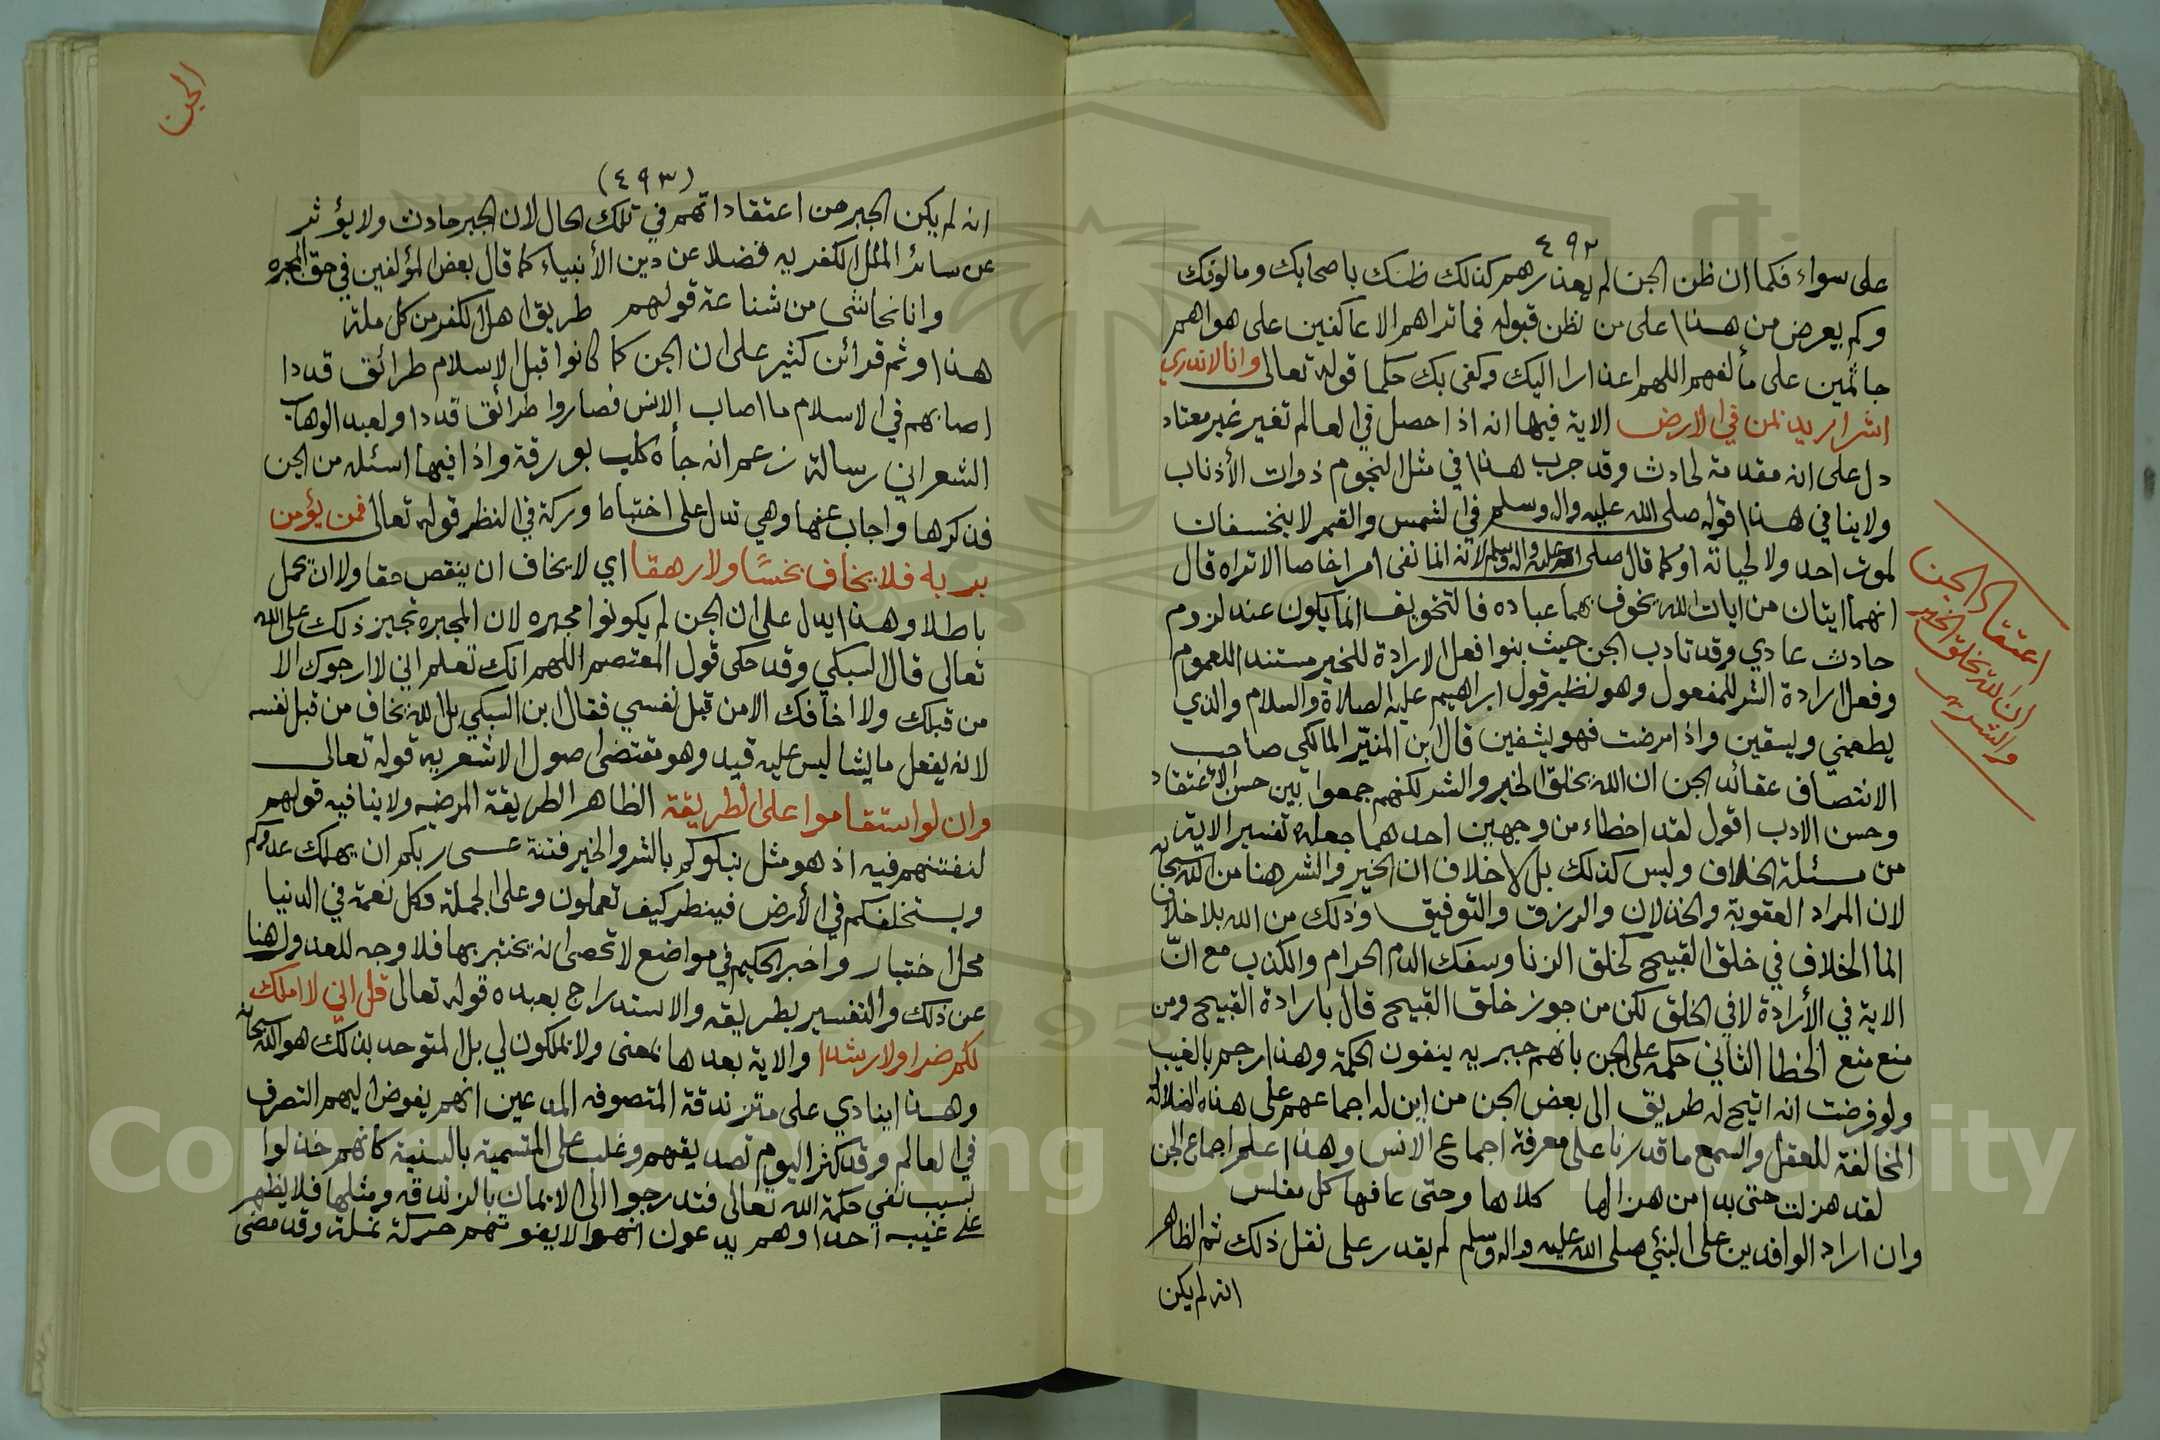 ٤٩٢
على سواء فكما ان ظن الجن لم يعذرهم كذلك ظنك باصحابك ومالوفك
وكم يعرض من هذا على من نظن قبوله فما تراهم الا عاكفين على هواهم
جاثمين على مألفهم اللهم اعذارا اليك وكفى بك حكما قوله تعالى وانا لا ندري
اشر اريد بمن في الارض الاية فيها انه اذا حصل في العالم تغير غير معتاد
دل على انه مقدمة لحادث وقد جرب هذا في مثل النجوم ذوات الأذناب
ولا ينافي هذا قوله صلى الله عليه واله وسلم في الشمس والقمر لا ينخسفان
لموت احد ولا لحياته او كما قال صلى الله عليه واله وسلم لانه انما نفى امرا خاصا الا تراه قال
انهما ايتان من ايات الله يخوف بهما عباده فالتخويف انما يكون عند لزوم
حادث عادي وقد تادب الجن حيث بنوا فعل الارادة للخير مستندا للعموم
وفعل ارادة الشر للمفعول وهو نظير قول ابراهيم عليه الصلاة والسلام والذي
يطعمني ويسقين واذا مرضت فهو يشفين قال ابن المنيّر المالكي صاحب
الانتصاف عقائد الجن ان الله يخلق الخير والشر لكنهم جمعوا بين حسن الاعتقاد
وحسن الادب اقول لقد اخطاء من وجهين احدهما جعله تفسير الاية
من مسئلة الخلاف وليس كذلك بل لا خلاف ان الخير والشر هنا من الله سبحانه
لان المراد العقوبة والخذلان والرزق والتوفيق وذلك من الله بلا خلاف
انما الخلاف في خلق القبيح كخلق الزنا وسفك الدم الحرام والكذب مع انّ
الاية في الأرادة لا في الخلق لكن من جوز خلق القبيح قال بارادة القبيح ومن
منع منع الخطا الثاني حكمه على الجن بانهم جبريه ينفون الحكمة وهذا رجم بالغيب
ولو فرضت انه اتيح له طريق الى بعض الجن من اين له اجماعهم على هذه الضلالة
المخالفة للعقل والسمع ما قدرنا على معرفة اجماع الانس وهذا علم اجماع الجن
لقد هزلت حتى بدا من هزالها كلاها وحتى عافها كل مفلس
وان اراد الوافدين على النبي صلى الله عليه واله وسلم لم يقدر على نقل ذلك ثم الظاهر
انه لم يكن
اعتقاد الجن
ان الله يخلق الخير
والشر
الجن
(٤٩٣)
انه لم يكن الجبر من اعتقاداتهم في تلك الحال لان الجبر حادث ولا يؤثر
عن سائر الملل الكفريه فضلا عن دين الأنبياء كما قال بعض المؤلفين في حق المجبره
وانا نحاشى من شناعة قولهم طريق اهل الكفر من كل ملة
هذا وثم قرائن كثير على ان الجن كما كانوا قبل الاسلام طرائق قددا
اصابهم في الاسلام ما اصاب الانس فصاروا طرائق قددا ولعبد الوهاب
الشعراني رسالة زعم انه جأه كلب بورقة واذا فيها اسئله من الجن
فذكرها واجاب عنها وهي تدل على اختباط وركة في النظر قوله تعالى فمن يؤمن
بربه فلا يخاف بخسًا ولا رهقا اي لا يخاف ان ينقص حقا ولا ان يحمل
باطلا وهذا يدل على ان الجن لم يكونوا مجبره لان المجبره تجيز ذلك على الله
تعالى قال السبكي وقد حكى قول المعتصم اللهم انك تعلم اني لا ارجوك الا
من قبلك ولا اخافك الا من قبل نفسي فقال ابن السبكي بل الله يخاف من قبل نفسه
لانه يفعل ما يشا ليس عليه قيد وهو مقتضى اصول الاشعريه قوله تعالى
وان لو استقاموا على الطريقة الظاهر الطريقة المرضيه ولا ينافيه قولهم
لنفتنهم فيه اذ هو مثل نبلوكم بالشر والخير فتنة عسى ربكم ان يهلك عدوكم
ويستخلفكم في الأرض فينظر كيف تعملون وعلى الجملة فكل نعمة في الدنيا
محل اختبار واخبر الحكيم في مواضع لا تحصى انه يختبر بها فلا وجه للعدول هنا
عن ذلك والتفسير بطريقه والاستدراج بعبده قوله تعالى قل اني لا املك
لكم ضرا ولا رشدا والاية بعدها بمعنى ولا تملكون لي بل المتوحد بذلك هو الله سبحانه
وهذا ينادي على متزندقة المتصوفه المدعين انهم يفوض اليهم التصرف
في العالم وقد كثر اليوم تصديقهم وغلب على المتسمية بالسنية كانهم خذلوا
بسبب نفي حكمة الله تعالى فتدرجوا الى الايمان بالزندقه ومثلها فلا يظهر
على غيبه احدا وهم يدعون انهم لا يفوتهم حركة نملة وقد مضى